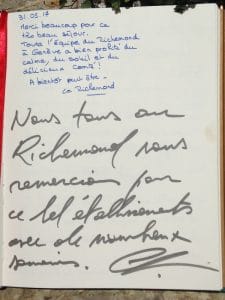 31.05.17
Merci beaucoup par ce
très beau séjour.
Toute l'équipe du Richemond
à Genève a bien profité du
calme, du soleil et du
délicieux comté!
A bientôt peut être -
Le Richemond
Nous tous au
Richemond vous
remercions pour
ce bel établissements
avec de nombreux